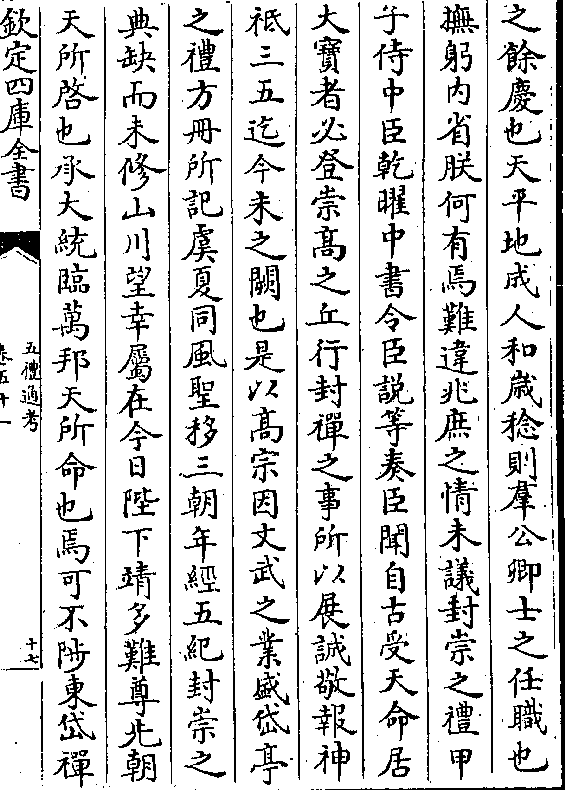 之餘慶也天平地成人和歳稔則羣公卿士之任職也
撫躬内省朕何有焉難違兆庶之情未議封崇之禮甲
子侍中臣乾曜中書令臣説等奏臣聞自古受天命居
大寶者必登崇髙之丘行封禪之事所以展誠敬報神
祗三五迄今未之闕也是以髙宗因文武之業盛岱亭
之禮方冊所記虞夏同風聖移三朝年經五紀封崇之
典缺而未修山川望幸屬在今日陛下靖多難尊先朝
天所啓也承大統臨萬邦天所命也焉可不陟東岱禪
欽定四庫全書
五禮通考
卷五十一
十七